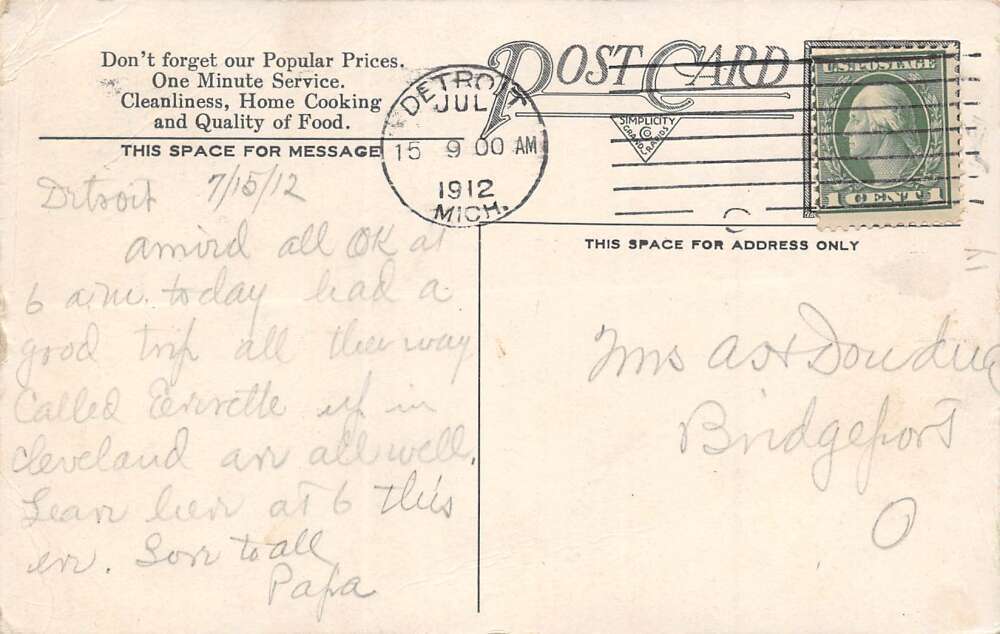 Don't forget our Popular Prices.
One Minute Service.
Cleanliness, Home Cooking
and Quality of Food.
THIS SPACE FOR MESSAGE
Detroit 7/15/12
arrived all OK at
6 a.m. today had a
good trip all the way
Called Everette up in
cleveland are all well.
Leave here at 6 this
eve. Love to all
Papa
DETROIT
JUL
15 9 00 AM
1912
MICH.
POST CARD
SIMPLICITY
CO
GRAND RAPIDS
U.S. POSTAGE
1 CENT 1
THIS SPACE FOR ADDRESS ONLY
Mrs
Bridgeport
O